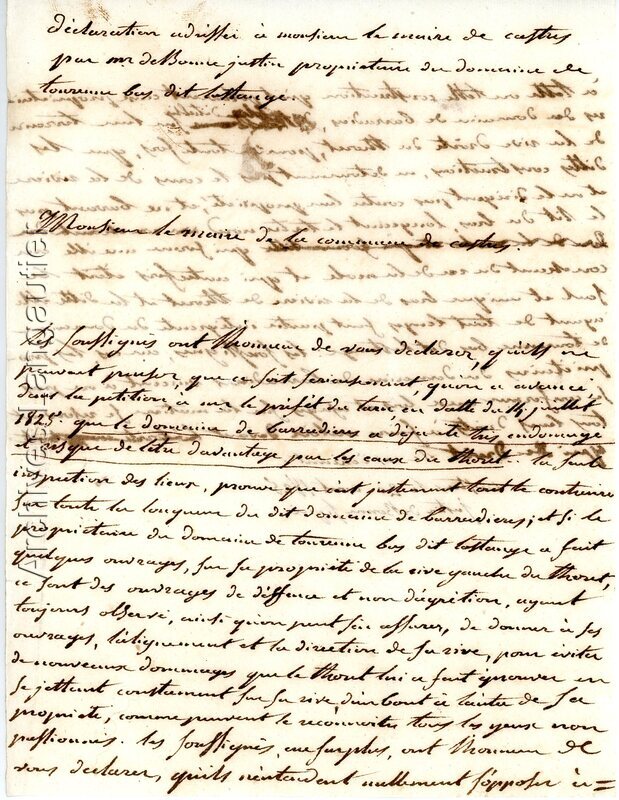 déclaration adressée à monsieur le maire de castres
par mr de Bonne justin propriétaire du domaine de
tourenne bas dit lastange.
Monsieur le maire de la commune de castres.
Les soussignés ont l'honneur de vous déclarer, qu'ils ne
peuvent penser, que ce soit sérieusement, qu'on a avancé
dans la pétition, à mr le préfet du tarn en datte du 14 juillet
1825. que le domaine de barradieres a déja été très endomagé
et risque de l'être davantage par les eaux du thoret. la seule
inspection des lieux, prouve que c'est justement tout le contraire
sur toute la longueur du dit domaine de barradieres; et si le
propriétaire du domaine de tourenne bas dit lastange a fait
quelques ouvrages, sur sa propriété de la rive gauche du thoret,
ce sont des ouvrages de déffence et non d'agrétion, ayant
toujours observé, ainsi qu'on peut s'en assurer, de donner à ses
ouvrages, l'alignement et la direction de sa rive, pour éviter
de nouveaux dommages que le thoret lui a fait éprouver en
se jettant constament sur sa rive d'un bout à l'autre de sa
propriété, comme peuvent le reconnoitre tous les yeux non
passionnés. les soussignés, au surplus, ont l'honneur de
vous déclarer, qu'ils n'entendent nullement s'opposer à =
Archives Ramsautier